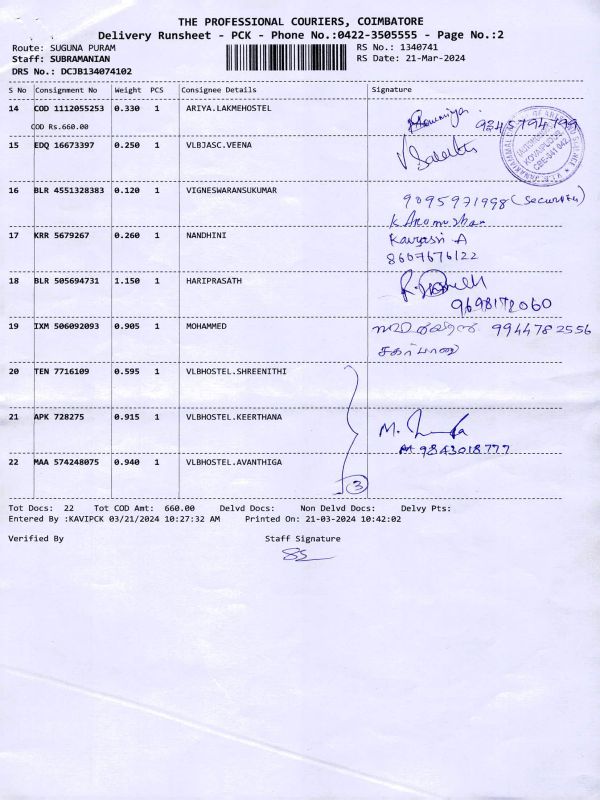 THE PROFESSIONAL COURIERS, COIMBATORE
Delivery Runsheet - PCK - Phone No.:0422-3505555 - Page No.:2
Route: SUGUNA PURAM RS No.: 1340741
Staff: SUBRAMANIAN RS Date: 21-Mar-2024
DRS No.: DCJB134074102
S No Consignment No Weight PCS Consignee Details Signature
14 COD 1112055253 0.330 1 ARIYA.LAKMEHOSTEL
COD Rs.660.00
15 EDQ 16673397 0.250 1 VLBJASC.VEENA
16 BLR 4551328383 0.120 1 VIGNESWARANSUKUMAR
9095971998 (Security)
17 KRR 5679267 0.260 1 NANDHINI
8607676122
18 BLR 505694731 1.150 1 HARIPRASATH
9698172060
19 IXM 506092093 0.905 1 MOHAMMED 9944782556
20 TEN 7716109 0.595 1 VLBHOSTEL.SHREENITHI
21 APK 728275 0.915 1 VLBHOSTEL.KEERTHANA
M.
9843018777
22 MAA 574248075 0.940 1 VLBHOSTEL.AVANTHIGA
3
Tot Docs: 22 Tot COD Amt: 660.00 Delvd Docs: Non Delvd Docs: Delvy Pts:
Entered By :KAVIPCK 03/21/2024 10:27:32 AM Printed On: 21-03-2024 10:42:02
Verified By Staff Signature